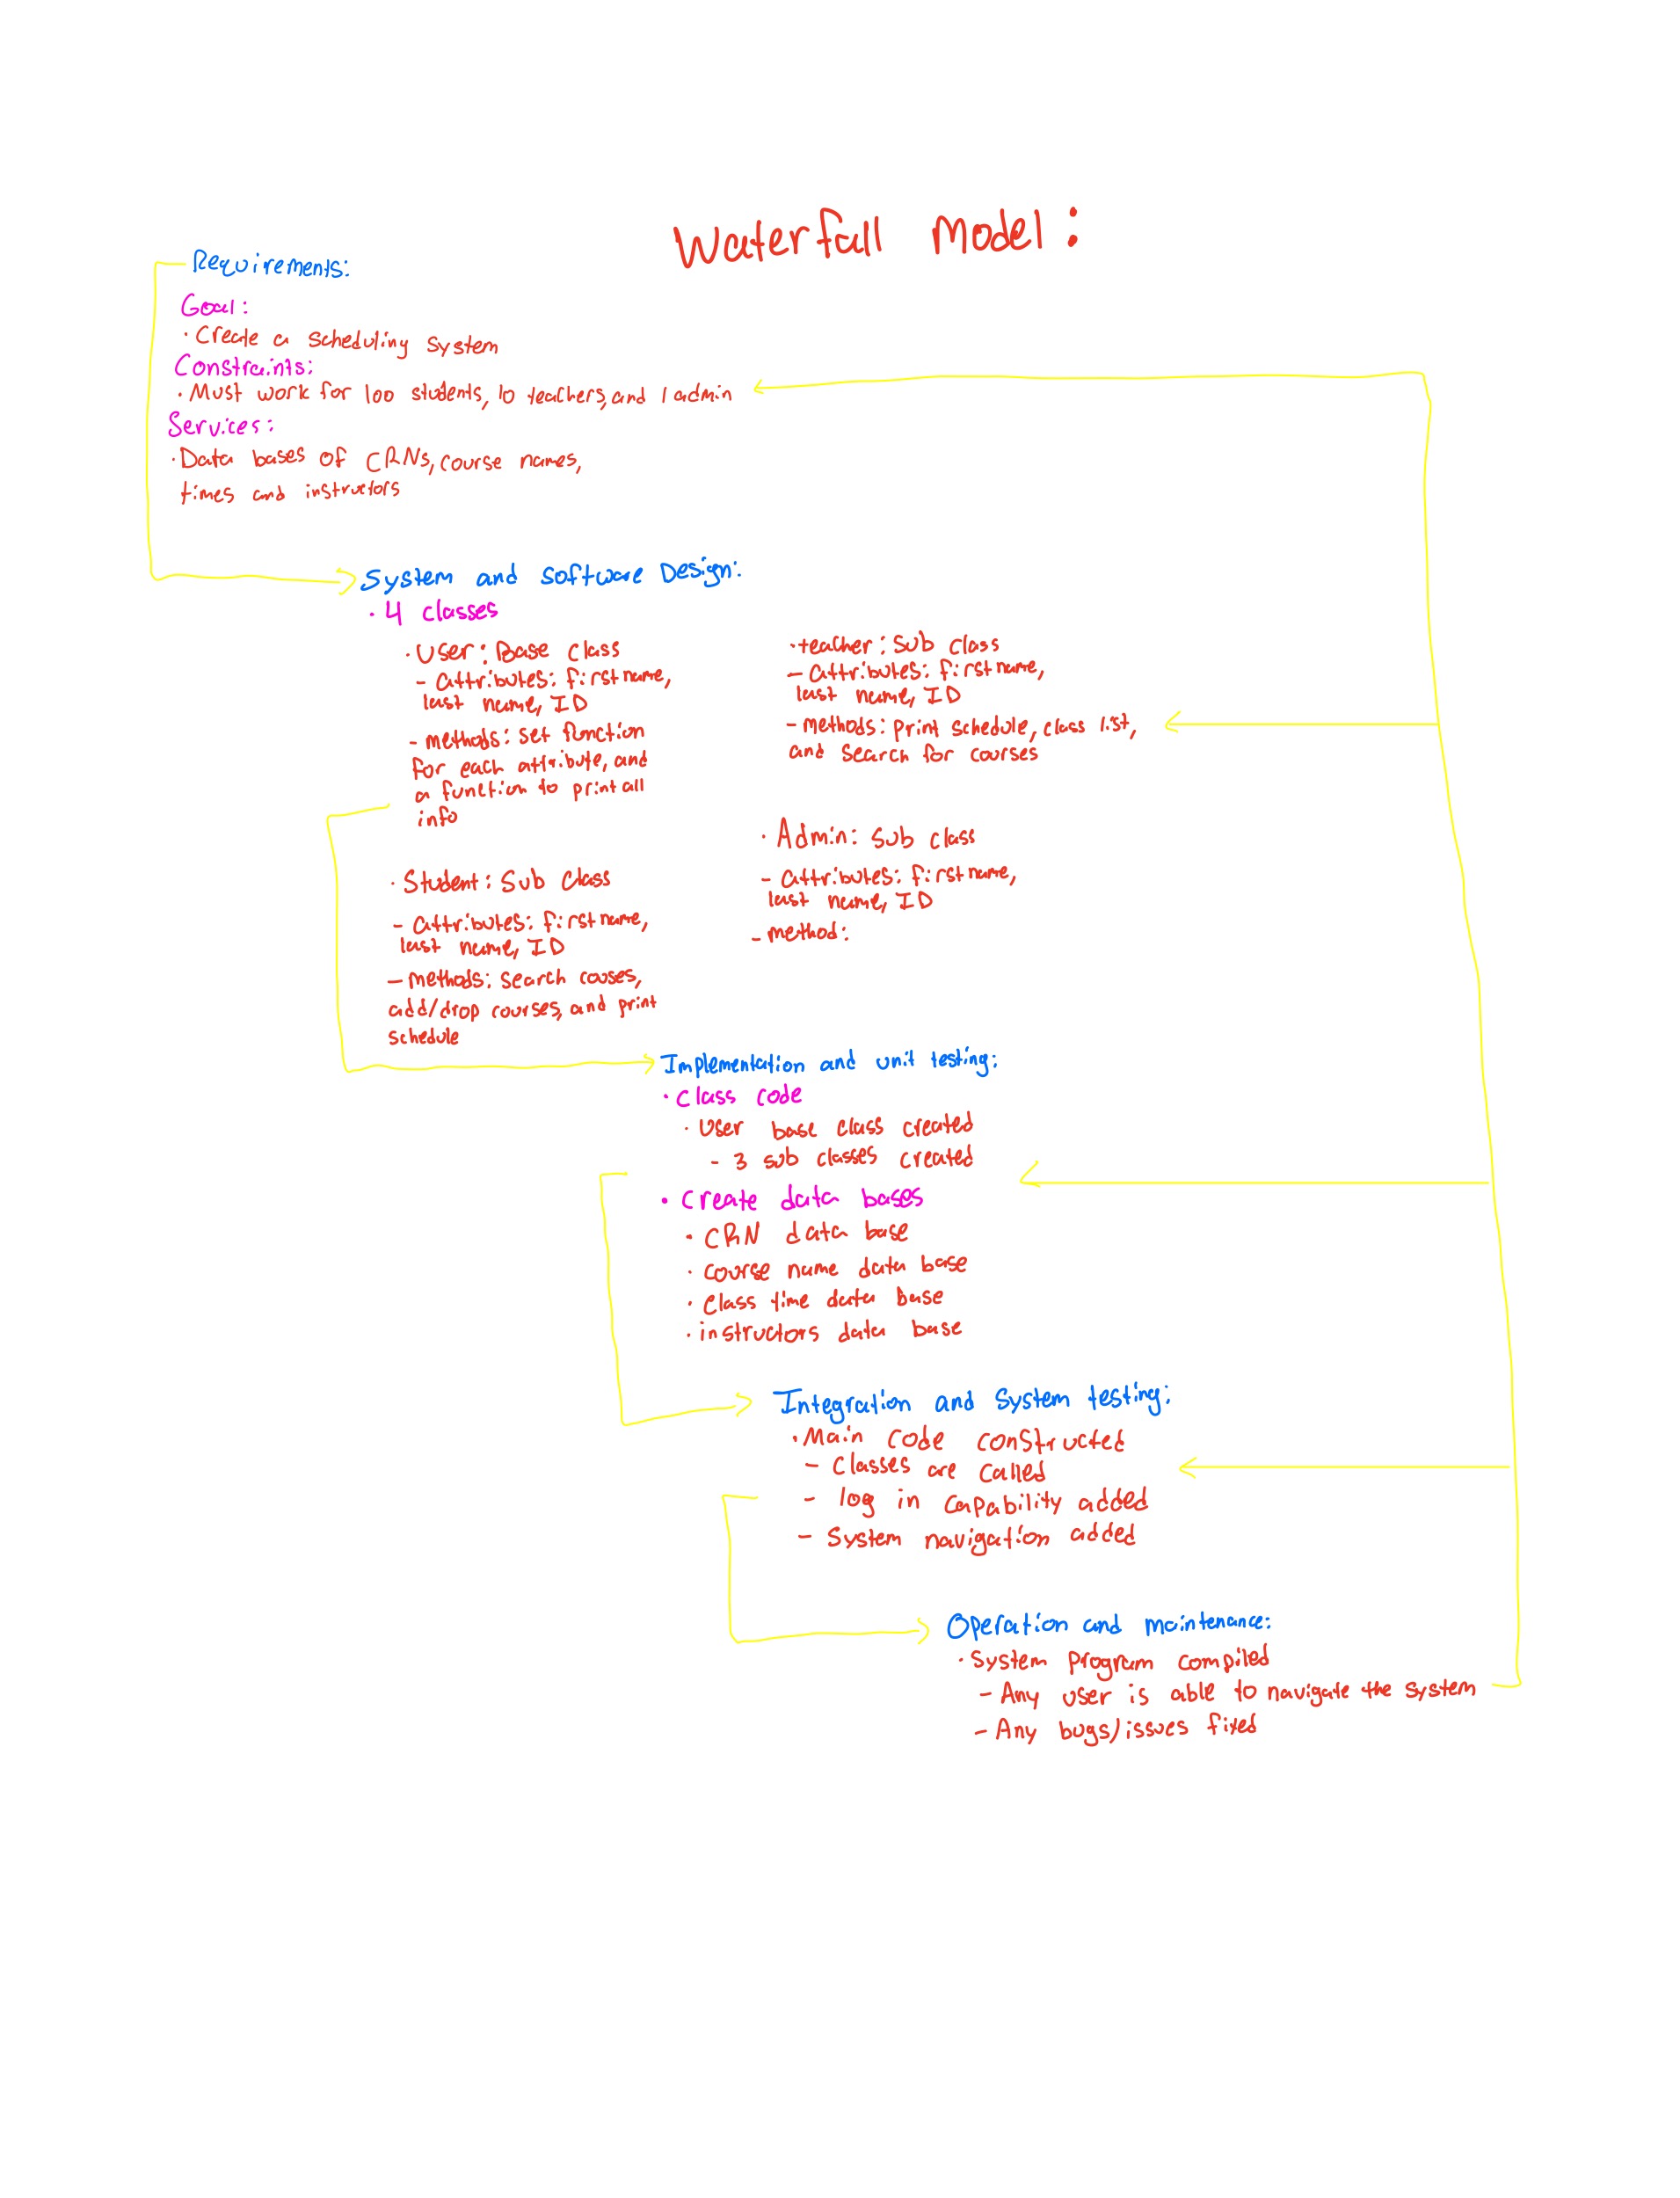 Waterfall Model:
Requirements:
Goal:
· Create a scheduling system
Constraints:
· Must work for 100 students, 10 teachers, and 1 admin
Services:
· Data bases of CRNs, course names,
times and instructors
System and Software Design:
· 4 classes
· User: Base class
- attributes: first name,
last name, ID
- methods: set function
for each attribute, and
a function to print all
info
· Student: Sub Class
- attributes: first name,
last name, ID
- methods: search couses,
add/drop courses, and print
schedule
· teacher: Sub class
- attributes: first name,
last name, ID
- methods: print schedule, class list,
and search for courses
· Admin: sub class
- attributes: first name,
last name, ID
- method:
Implementation and unit testing:
· Class code
· User base class created
- 3 sub classes created
· Create data bases
· CRN data base
· course name data base
· Class time data base
· instructors data base
Integration and System testing:
· Main code constructed
- Classes are called
- log in capability added
- System navigation added
Operation and maintenance:
· System Program compiled
- Any user is able to navigate the system
- Any bugs/issues fixed